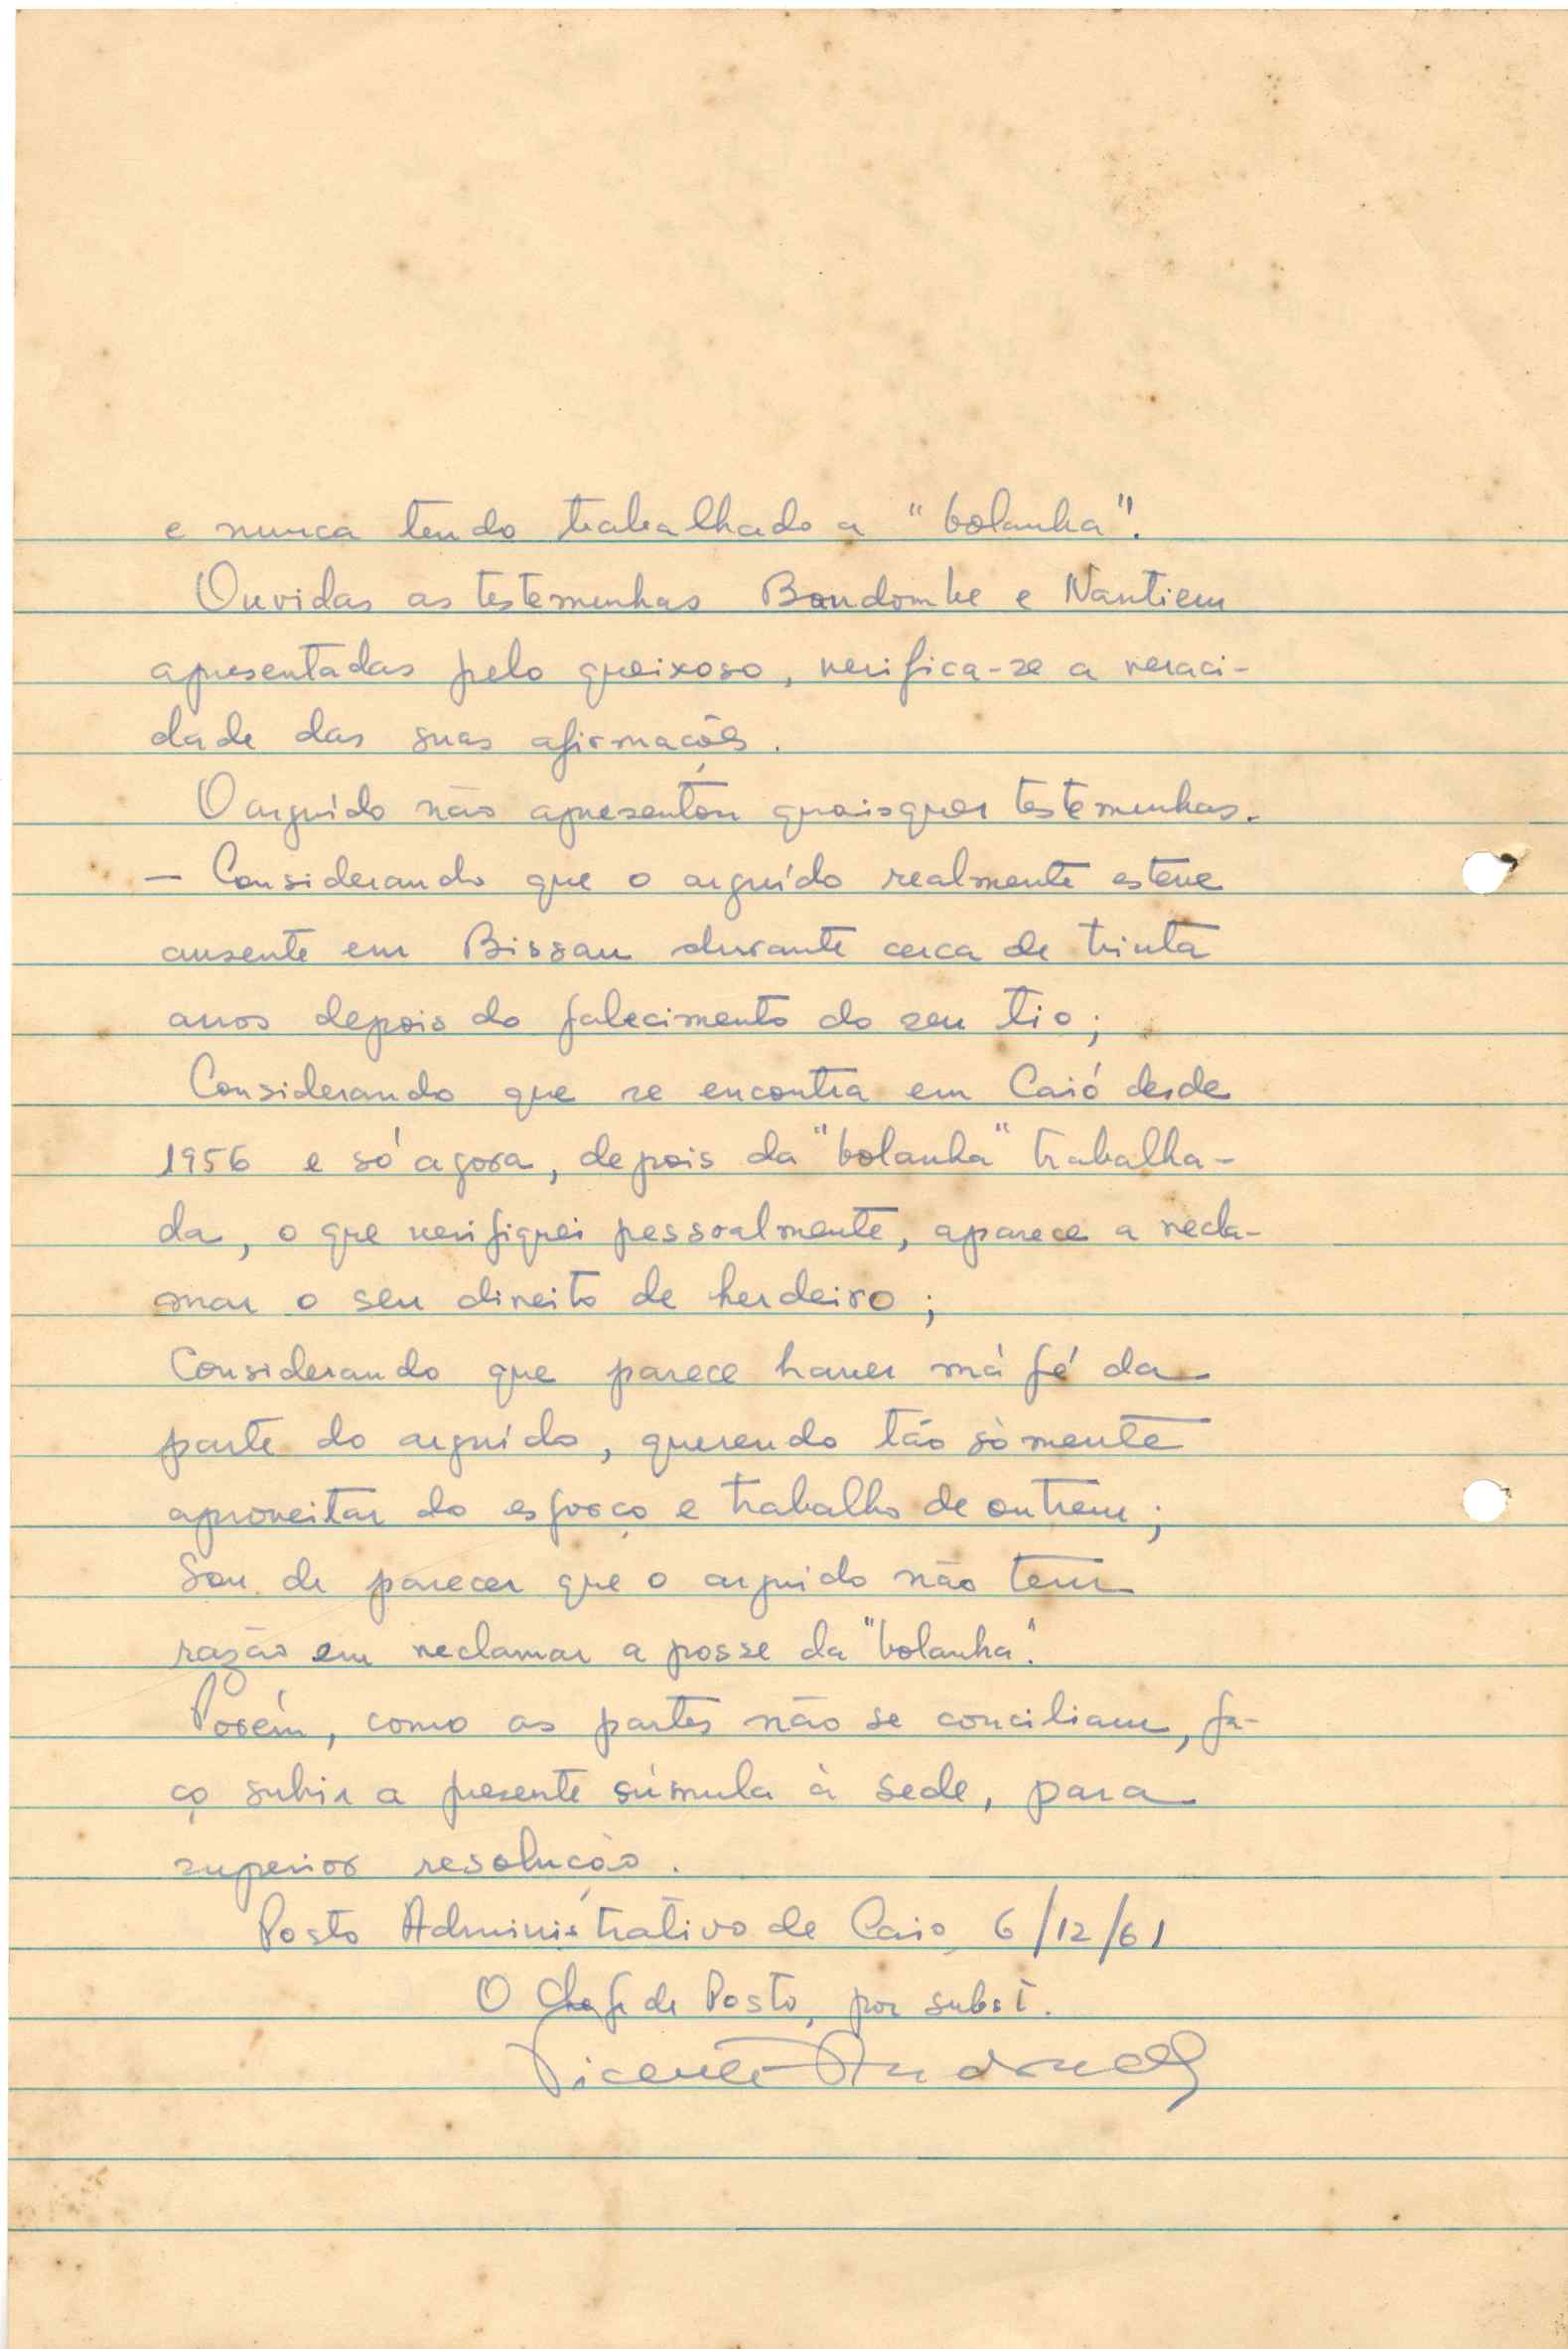 e nunca tendo trabalhado a "bolanha".
Ouvidas as testemunhas Bondombe e Nantiem
apresentadas pelo queixoso, verifica-se a veraci-
dade das suas afirmações.
O arguído não apresentou quaisquer testemunhas.
— Considerando que o arguído realmente esteve
ausente em Bissau durante cerca de trinta
anos depois do falecimento do seu tio;
Considerando que se encontra em Caió desde
1956 e só agora, depois da "bolanha" trabalha-
da, o que verifiquei pessoalmente, aparece a recla-
mar o seu direito de herdeiro;
Considerando que parece haver má fé da
parte do arguído, querendo tão sòmente
aproveitar do esforço e trabalho de outrem;
Sou de parecer que o arguido não tem
razão em reclamar a posse da "bolanha".
Porém, como as partes não se conciliam, fa-
ço subir a presente súmula à sede, para
superior resolução.
Posto Administrativo de Caio, 6/12/61
O Chefe de Posto, por subst.
Vicente